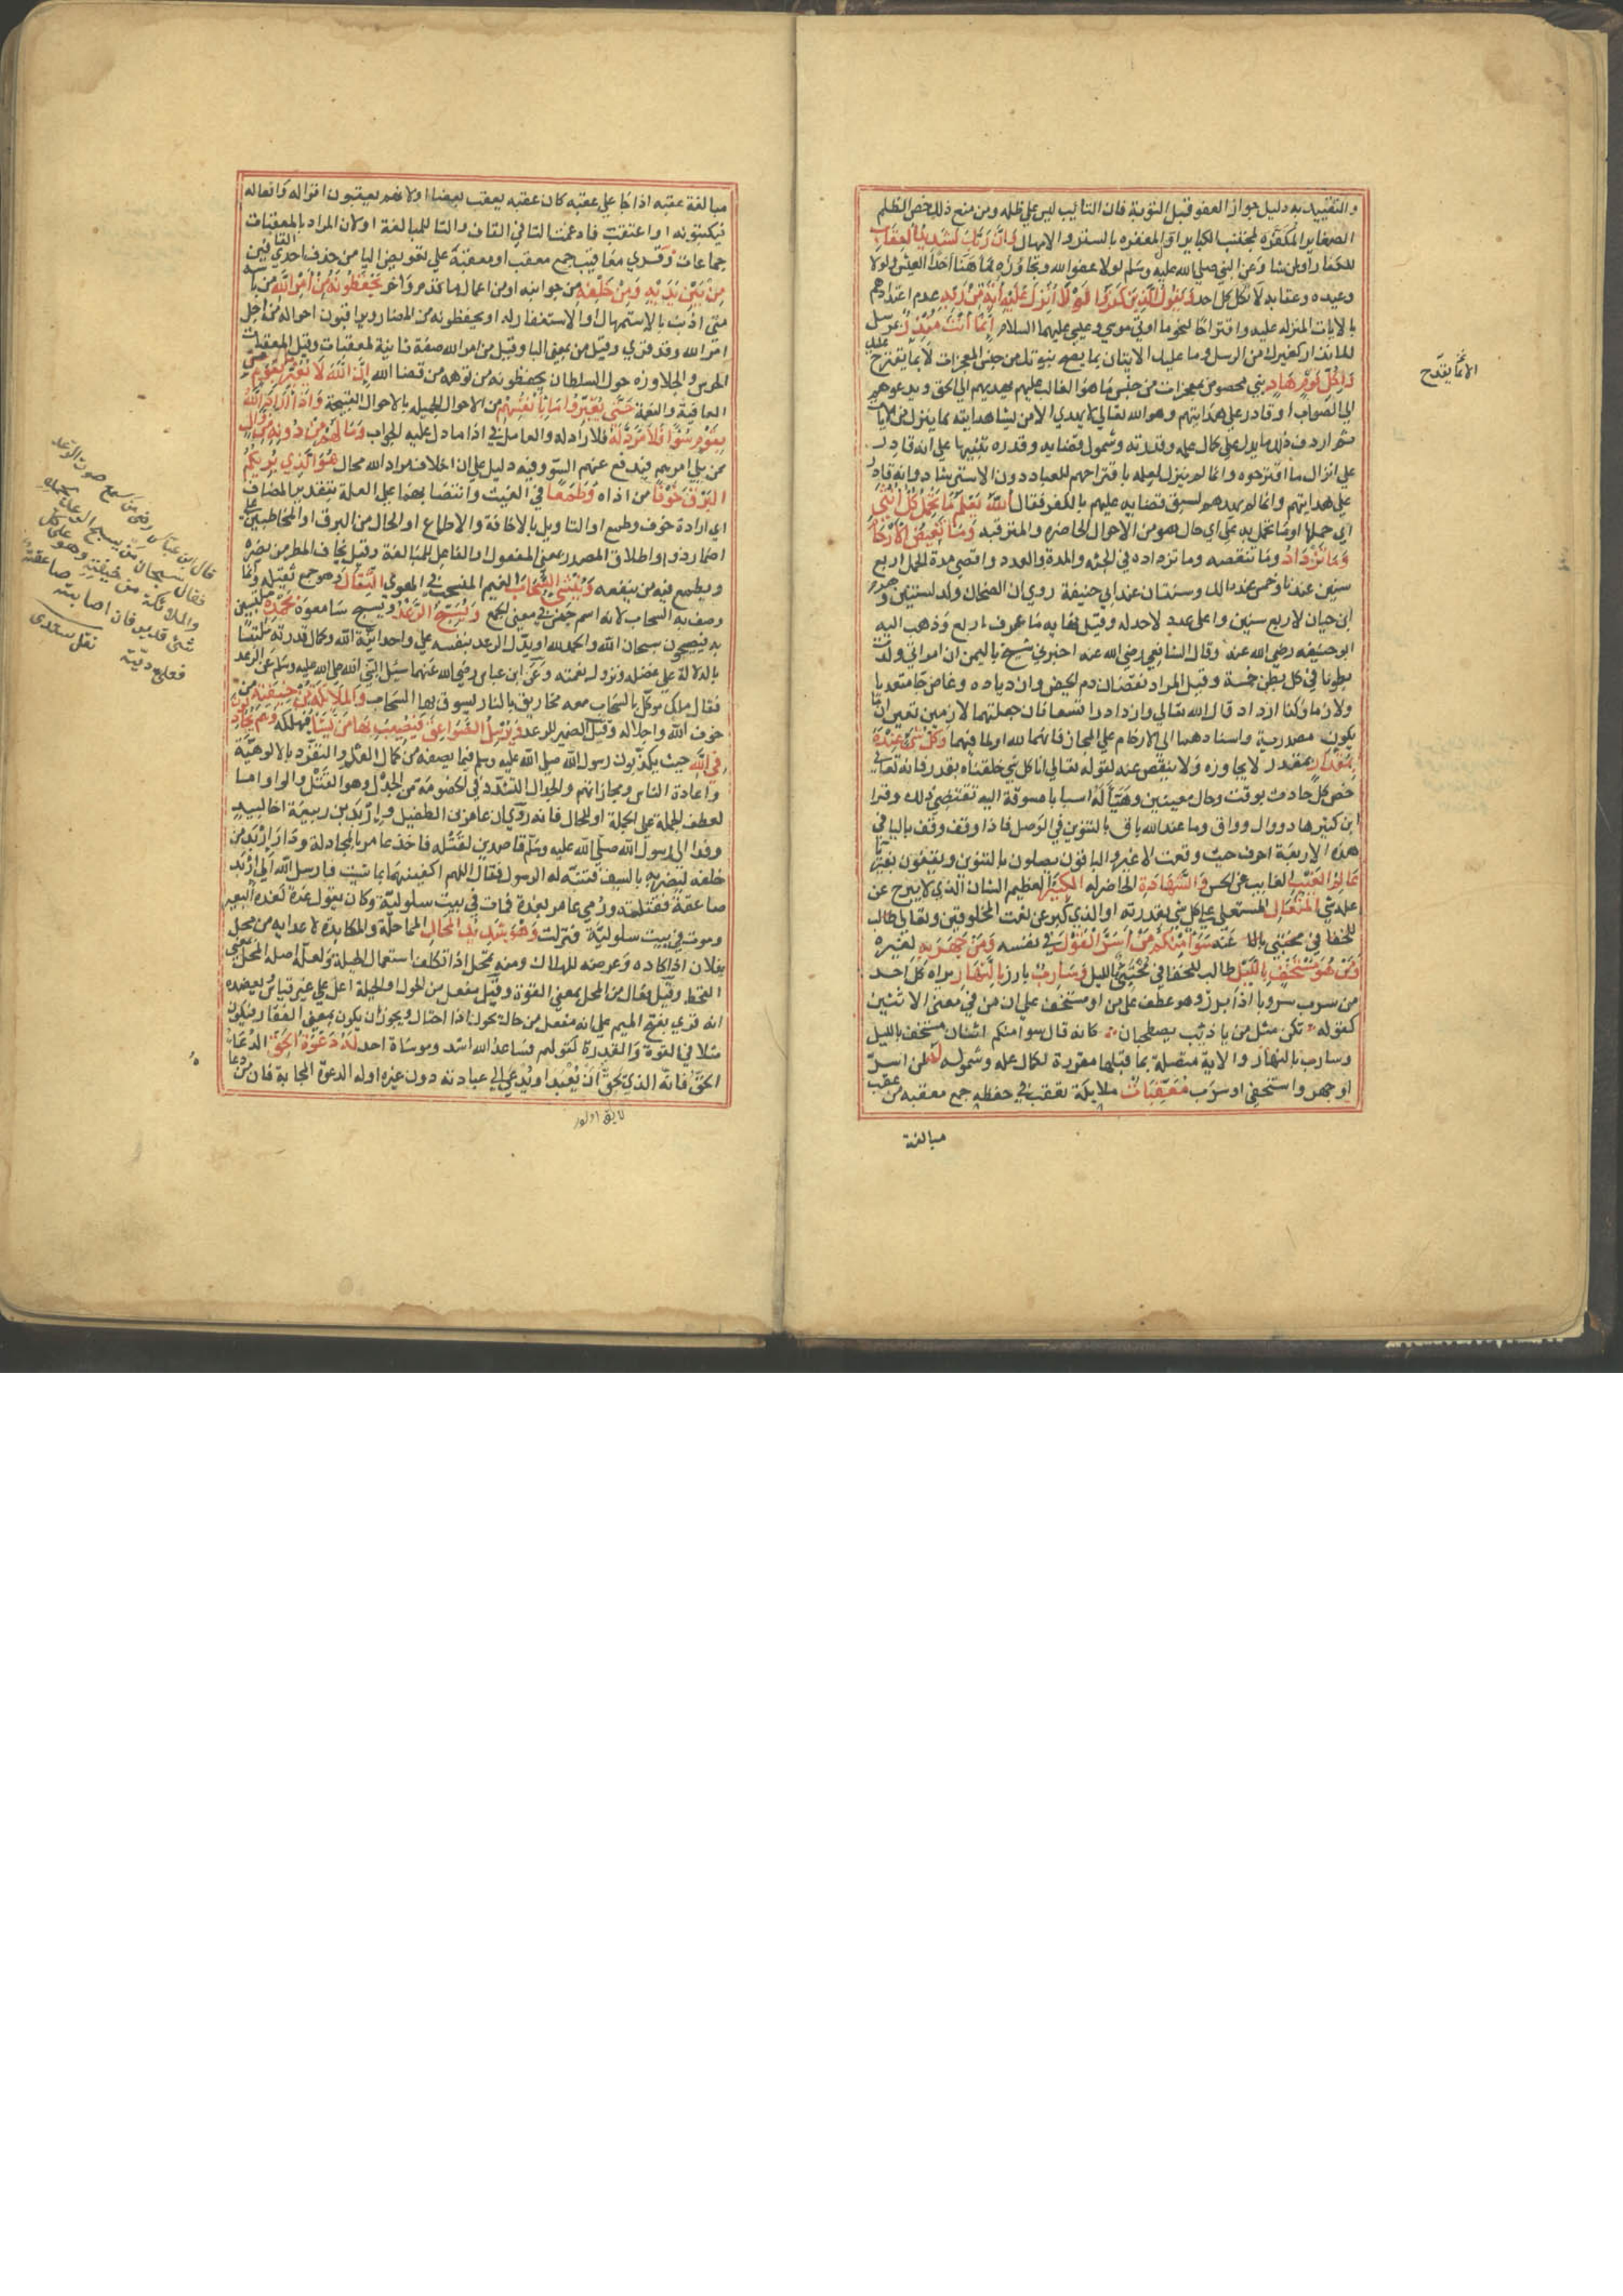 والتقييد به دليل جواز العفو قبل التوبة فان التايب ليس على ظلمه ومن منع ذلك خص الظلم
الصغاير المكفرة لمجتنب الكباير او المغفره بالستر والامهال وان ربك لشديد العقاب
للكفار او لمن شا وعن النبي صلى الله عليه وسلم لولا عفو الله وتجاوزه لما هنا احدا العيش ولولا
وعيده وعقابه لاتكل كل احد ويقول الذين كفروا لولا انزل عليه اية من ربه لعدم اعتدادهم
بالايات المنزله عليه واقتراحا لنحو ما اوتي موسى وعيسى عليهما السلام انما انت منذر مرسل
للانذار كغيرك من الرسل وما عليك الا الاتيان بما يصح به نبوتك من جنس المعجزات لا بما يقترح عليك
ولكل قوم هاد نبي مخصوص بمعجزات من جنس ما هو الغالب عليهم يهديهم الى الحق ويدعوهم
الى الصواب او قادر على هدايتهم وهو الله تعالى لا يهدي الا من يشا هدايته بما ينزل من الايات
ثم اردف ذلك ما يدل على كمال علمه وقدرته وشمول قضايه وقدره تنبيها على انه قادر
على انزال ما اقترحوه وانما لم ينزل لعلمه باقتراحهم للعناد دون الاسترشاد وانه قادر
على هدايتهم وانما لم يهدهم لسبق قضايه عليهم بالكفر فقال الله يعلم ما تحمل كل انثى
اي حملها او ما تحمله على اي حال هو من الاحوال الحاضره والمترقبه وما تغيض الارحام
وما تزداد وما تنقصه وما تزداده في الجثه والمدة والعدد واقصى مدة الحمل اربع
سنين عندنا وخمس عند مالك وسنتان عند ابي حنيفة روي ان الضحاك ولد لسنتين وهرم
ابن حيان لاربع سنين واعلى عدد لا حد له وقيل نهايه ما عرف اربع وذهب اليه
ابو حنيفه رضي الله عنه وقال الشافعي رضي الله عنه اخبرني شيخ باليمن ان امراته ولدت
بطونا في كل بطن خمسة وقيل المراد نقصان دم الحيض وازدياده وغاض جا متعديا
ولازما وكذا ازداد قال الله تعالى وازدادوا تسعا فان جعلتهما لازمين تعين ان ما
يكون مصدرية واسنادهما الى الارحام على المجاز فانهما لله او لما فيها وكل شئ عنده
بمقدار بقدر لا يجاوزه ولا ينقص عنه لقوله تعالى انا كل شي خلقناه بقدر فانه تعالى
خص كل حادث بوقت وحال معينين وهيا له اسبابا مسوقة اليه تقتضي ذلك وقرا
ابن كثير هاد ووال وواق وما عند الله باق بالتنوين في الوصل فاذا وقف وقف باليا في
هذه الاربعة احرف حيث وقعت لا غير والباقون يصلون بالتنوين ويقفون بغير يا
عالم الغيب الغايب عن الحس والشهادة الحاضر له الكبير العظيم الشان الذي لا يخرج عن
علمه شي المتعال المستعلي على كل شي بقدرته او الذي كبر عن نعت المخلوقين وتعالى
سوا منكم من اسر القول في نفسه ومن جهر به لغيره
ومن هو مستخف بالليل طالب للخفا في مختبئ بالليل وسارب بارز بالنهار يراه كل احد
من سرب سروبا اذا برز وهو عطف على من او مستخف على ان من في معنى الاثنين
كقوله نكن مثل من يا ذئب يصطحبان كانه قال سوا منكم اثنان مستخف بالليل
وسارب بالنهار والاية متصلة بما قبلها مقررة لكمال علمه وشموله له لمن اسر
او جهر واستخفى او سرب معقبات ملايكة تعتقب في حفظه جمع معقبه من عقب
مبالغة
مبالغة عقبه اذا جا على عقبه كان بعضهم يعقب بعضا او لانهم يعقبون اقواله وافعاله
فيكتبونه او اعتقب فادغمت التا في القاف والتا للمبالغة او لان المراد بالمعقبات
جماعات وقري معاقيب جمع معقب او معقبة على تعويض اليا من حذف احدي القافين
من بين يديه ومن خلفه من جوانبه او من اعمال ما قدم واخر يحفظونه من امر الله من باسه
متى اذنب بالاستمهال او الاستغفار له او يحفظونه من المضار ويراقبون احواله من اجل
امر الله وقد قري وقيل من بمعنى البا وقيل من امر الله صفة ثانية لمعقبات وقيل المعقبات
الحرس والجلاوزه حول السلطان يحفظونه من توهمه من قضا الله ان الله لا يغير ما بقوم من
العافية والنعمة حتى يغيروا ما بانفسهم من الاحوال الجميله بالاحوال القبيحة واذا اراد الله
بقوم سوءا فلا مرد له فلا راد له والعامل في اذا ما دل عليه الجواب وما لهم من دونه من وال
ممن يلي امرهم فيدفع عنهم السو وفيه دليل على ان خلاف مراد الله محال هو الذي يريكم
البرق خوفا من اذاه وطمعا في الغيث وانتصابهما على العلة بتقدير المضاف
اي ارادة خوف وطمع او التاويل بالاخافة والاطماع او الحال من البرق او المخاطبين على
اضمار ذو او اطلاق المصدر بمعنى المفعول او الفاعل للمبالغة وقيل يخاف المطر من يضره
ويطمع فيه من ينفعه وينشئ السحاب الغيم المنسحب في الهوى الثقال وهو جمع ثقيله وانما
وصف به السحاب لانه اسم جنس في معنى الجمع ويسبح الرعد ويسبح سامعوه بحمده ملتبسين
به فيضجون سبحان الله والحمد لله او يدل الرعد بنفسه على وحدانية الله وكمال قدرته ملتبسا
بالدلالة على فضله ونزول رحمته وعن ابن عباس رضي الله عنهما سئل النبي صلى الله عليه وسلم عن الرعد
فقال ملك موكل بالسحاب معه مخاريق بالنار يسوق بها السحاب والملائكة من خيفته من
خوف الله واجلاله وقيل الضمير للرعد ويرسل الصواعق فيصيب بها من يشا فيهلكه وهم يجادلون
في الله حيث يكذبون رسول الله صلى الله عليه وسلم فيما يصفه من كمال العلم والتفرد بالالوهية
واعادة الناس ومجازاتهم والجدال التشدد في الخصومة من الجدل وهو الفتل والواو اما
لعطف الجملة على الجملة او للحال فانه روي ان عامر بن الطفيل واربد بن ربيعة اخا لبيد
وفدا الى رسول الله صلى الله عليه وسلم قاصدين لقتله فاخذ عامر بالمجادلة ودار اربد من
خلفه ليضربه بالسيف فتنبه له الرسول فقال اللهم اكفنيهما بما شيت فارسل الله الى اربد
صاعقة فقتلته ورمي عامر بغدة فمات في بيت سلولية وكان يقول غدة كغدة البعير
وموت في بيت سلولية فنزلت وهو شديد المحال المماحلة والمكايدة لاعدايه من محل
بفلان اذا كاده وعرضه للهلاك ومنه تمحل اذا تكلف استعمال الحيلة ولعل اصله المحل بمعنى
القحط وقيل فعال من المحل بمعنى القوة وقيل مفعل من الحول او الحيلة اعل على غير قياس ويعضده
انه قري بفتح الميم على انه مفعل من حال يحول اذا احتال ويجوز ان يكون بمعنى الفقار فيكون
مثلا في القوة والقدرة كقولهم فساعد الله اشد وموساه احد له دعوة الحق الدعا
الحق فانه الذي يحق ان يعبد او يدعى الى عبادته دون غيره او له الدعوة المجابة فان من دعا
قال ابن عباس رضى من سمع صوت الرعد
فقال سبحان من يسبح الرعد بحمده
والملائكة من خيفته وهو على كل
شئ قدير فان اصابته صاعقة
فعلي ديته
نقل سعدى